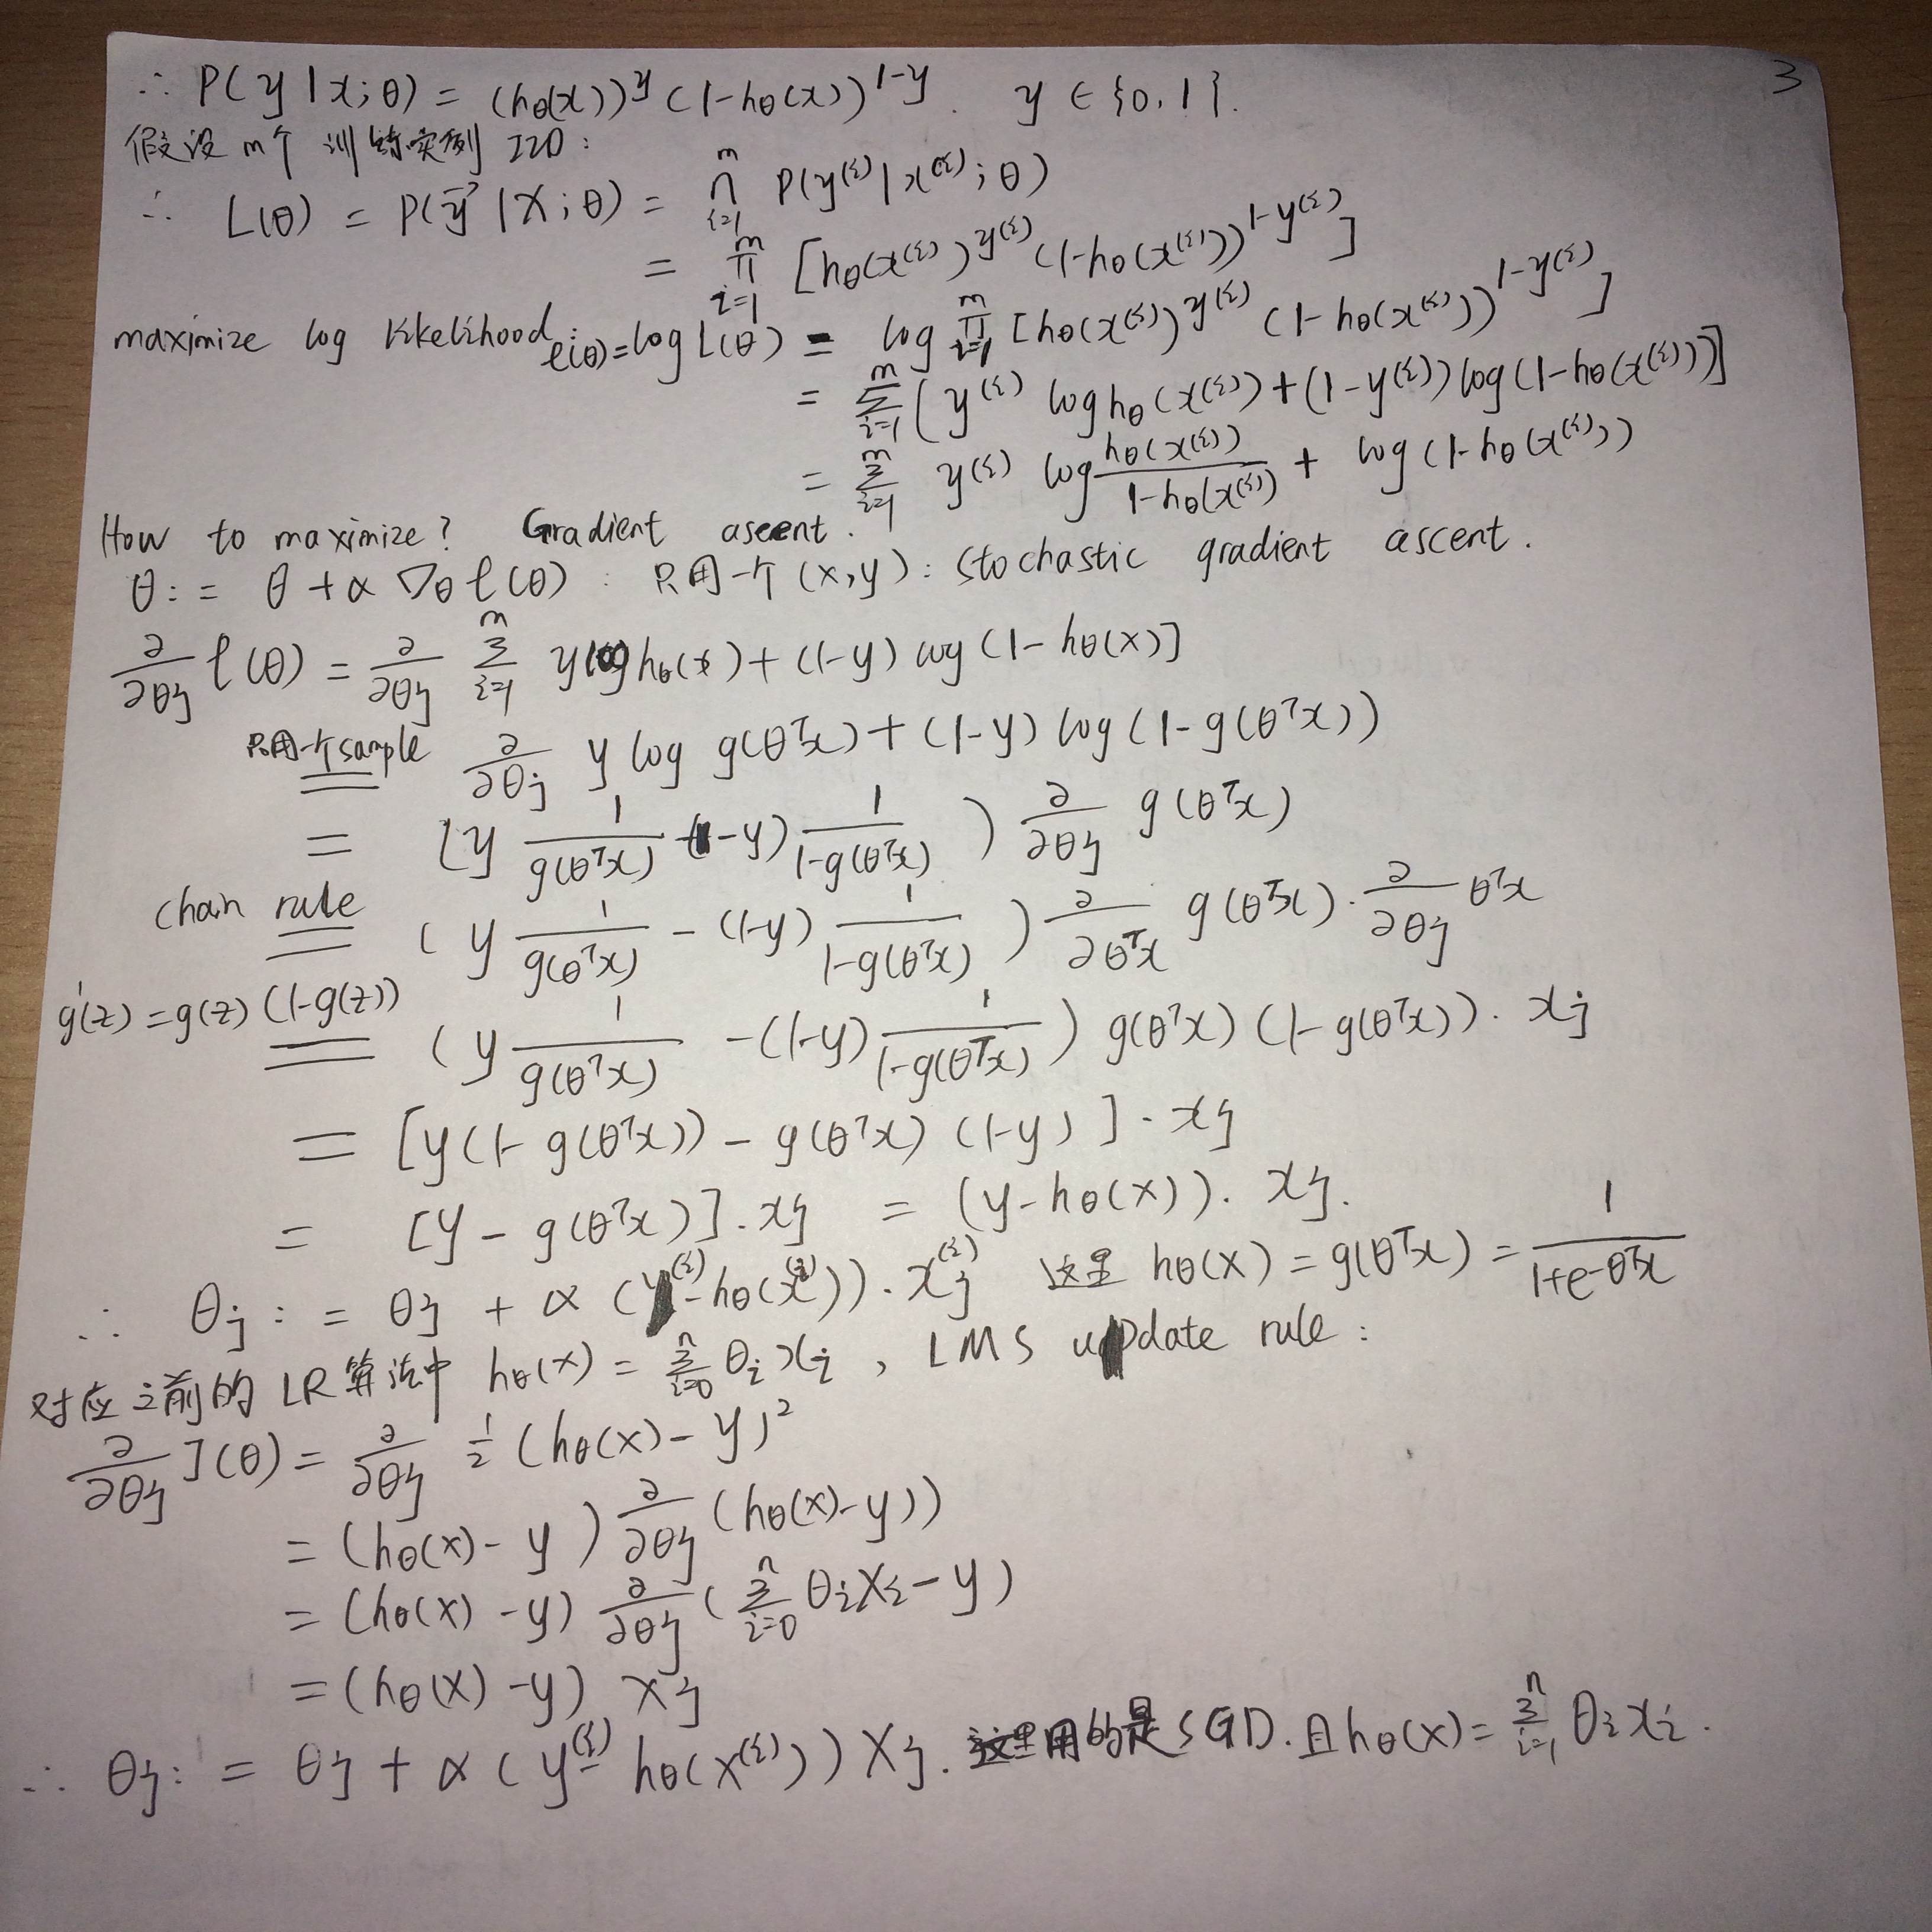 3
∴ P(y|x;θ) = (hθ(x))^y (1-hθ(x))^{1-y}. y ∈ {0,1}.
假设m个训练实例IID:
∴ L(θ) = P(y⃗|X;θ) = ∏_{i=1}^m P(y^{(i)}|x^{(i)};θ)
= ∏_{i=1}^m [hθ(x^{(i)})^{y^{(i)}} (1-hθ(x^{(i)}))^{1-y^{(i)}}]
maximize log likelihood ℓ(θ)=log L(θ) = log ∏_{i=1}^m [hθ(x^{(i)})^{y^{(i)}} (1-hθ(x^{(i)}))^{1-y^{(i)}}]
= ∑_{i=1}^m [y^{(i)} log hθ(x^{(i)}) + (1-y^{(i)}) log(1-hθ(x^{(i)}))]
= ∑_{i=1}^m y^{(i)} log \frac{hθ(x^{(i)})}{1-hθ(x^{(i)})} + log(1-hθ(x^{(i)}))
How to maximize? Gradient ascent.
θ := θ + α ∇θ ℓ(θ) : 只用一个(x,y): stochastic gradient ascent.
\frac{∂}{∂θj} ℓ(θ) = \frac{∂}{∂θj} ∑_{i=1}^m y log hθ(x) + (1-y) log(1-hθ(x)]
只用一个sample = \frac{∂}{∂θj} y log g(θ^T x) + (1-y) log(1-g(θ^T x))
= (y \frac{1}{g(θ^T x)} (1-y) \frac{1}{1-g(θ^T x)}) \frac{∂}{∂θj} g(θ^T x)
chain rule = (y \frac{1}{g(θ^T x)} - (1-y) \frac{1}{1-g(θ^T x)}) \frac{∂}{∂θ^T x} g(θ^T x) · \frac{∂}{∂θj} θ^T x
g'(z)=g(z)(1-g(z)) = (y \frac{1}{g(θ^T x)} - (1-y) \frac{1}{1-g(θ^T x)}) g(θ^T x)(1-g(θ^T x)) · xj
= [y(1-g(θ^T x)) - g(θ^T x)(1-y)] · xj
= [y - g(θ^T x)] · xj = (y-hθ(x)) · xj.
∴ θj := θj + α (y^{(i)}-hθ(x^{(i)})) · xj^{(i)} 这里 hθ(x) = g(θ^T x) = \frac{1}{1+e^{-θ^T x}}
对应之前的LR算法中 hθ(x) = ∑_{i=0}^n θi xi, LMS update rule:
\frac{∂}{∂θj} J(θ) = \frac{∂}{∂θj} \frac{1}{2} (hθ(x)-y)^2
= (hθ(x)-y) \frac{∂}{∂θj} (hθ(x)-y))
= (hθ(x)-y) \frac{∂}{∂θj} (∑_{i=0}^n θi xi - y)
= (hθ(x)-y) xj
∴ θj := θj + α (y^{(i)} - hθ(x^{(i)})) xj. 这里用的是SGD. 且hθ(x) = ∑_{i=1}^n θi xi.